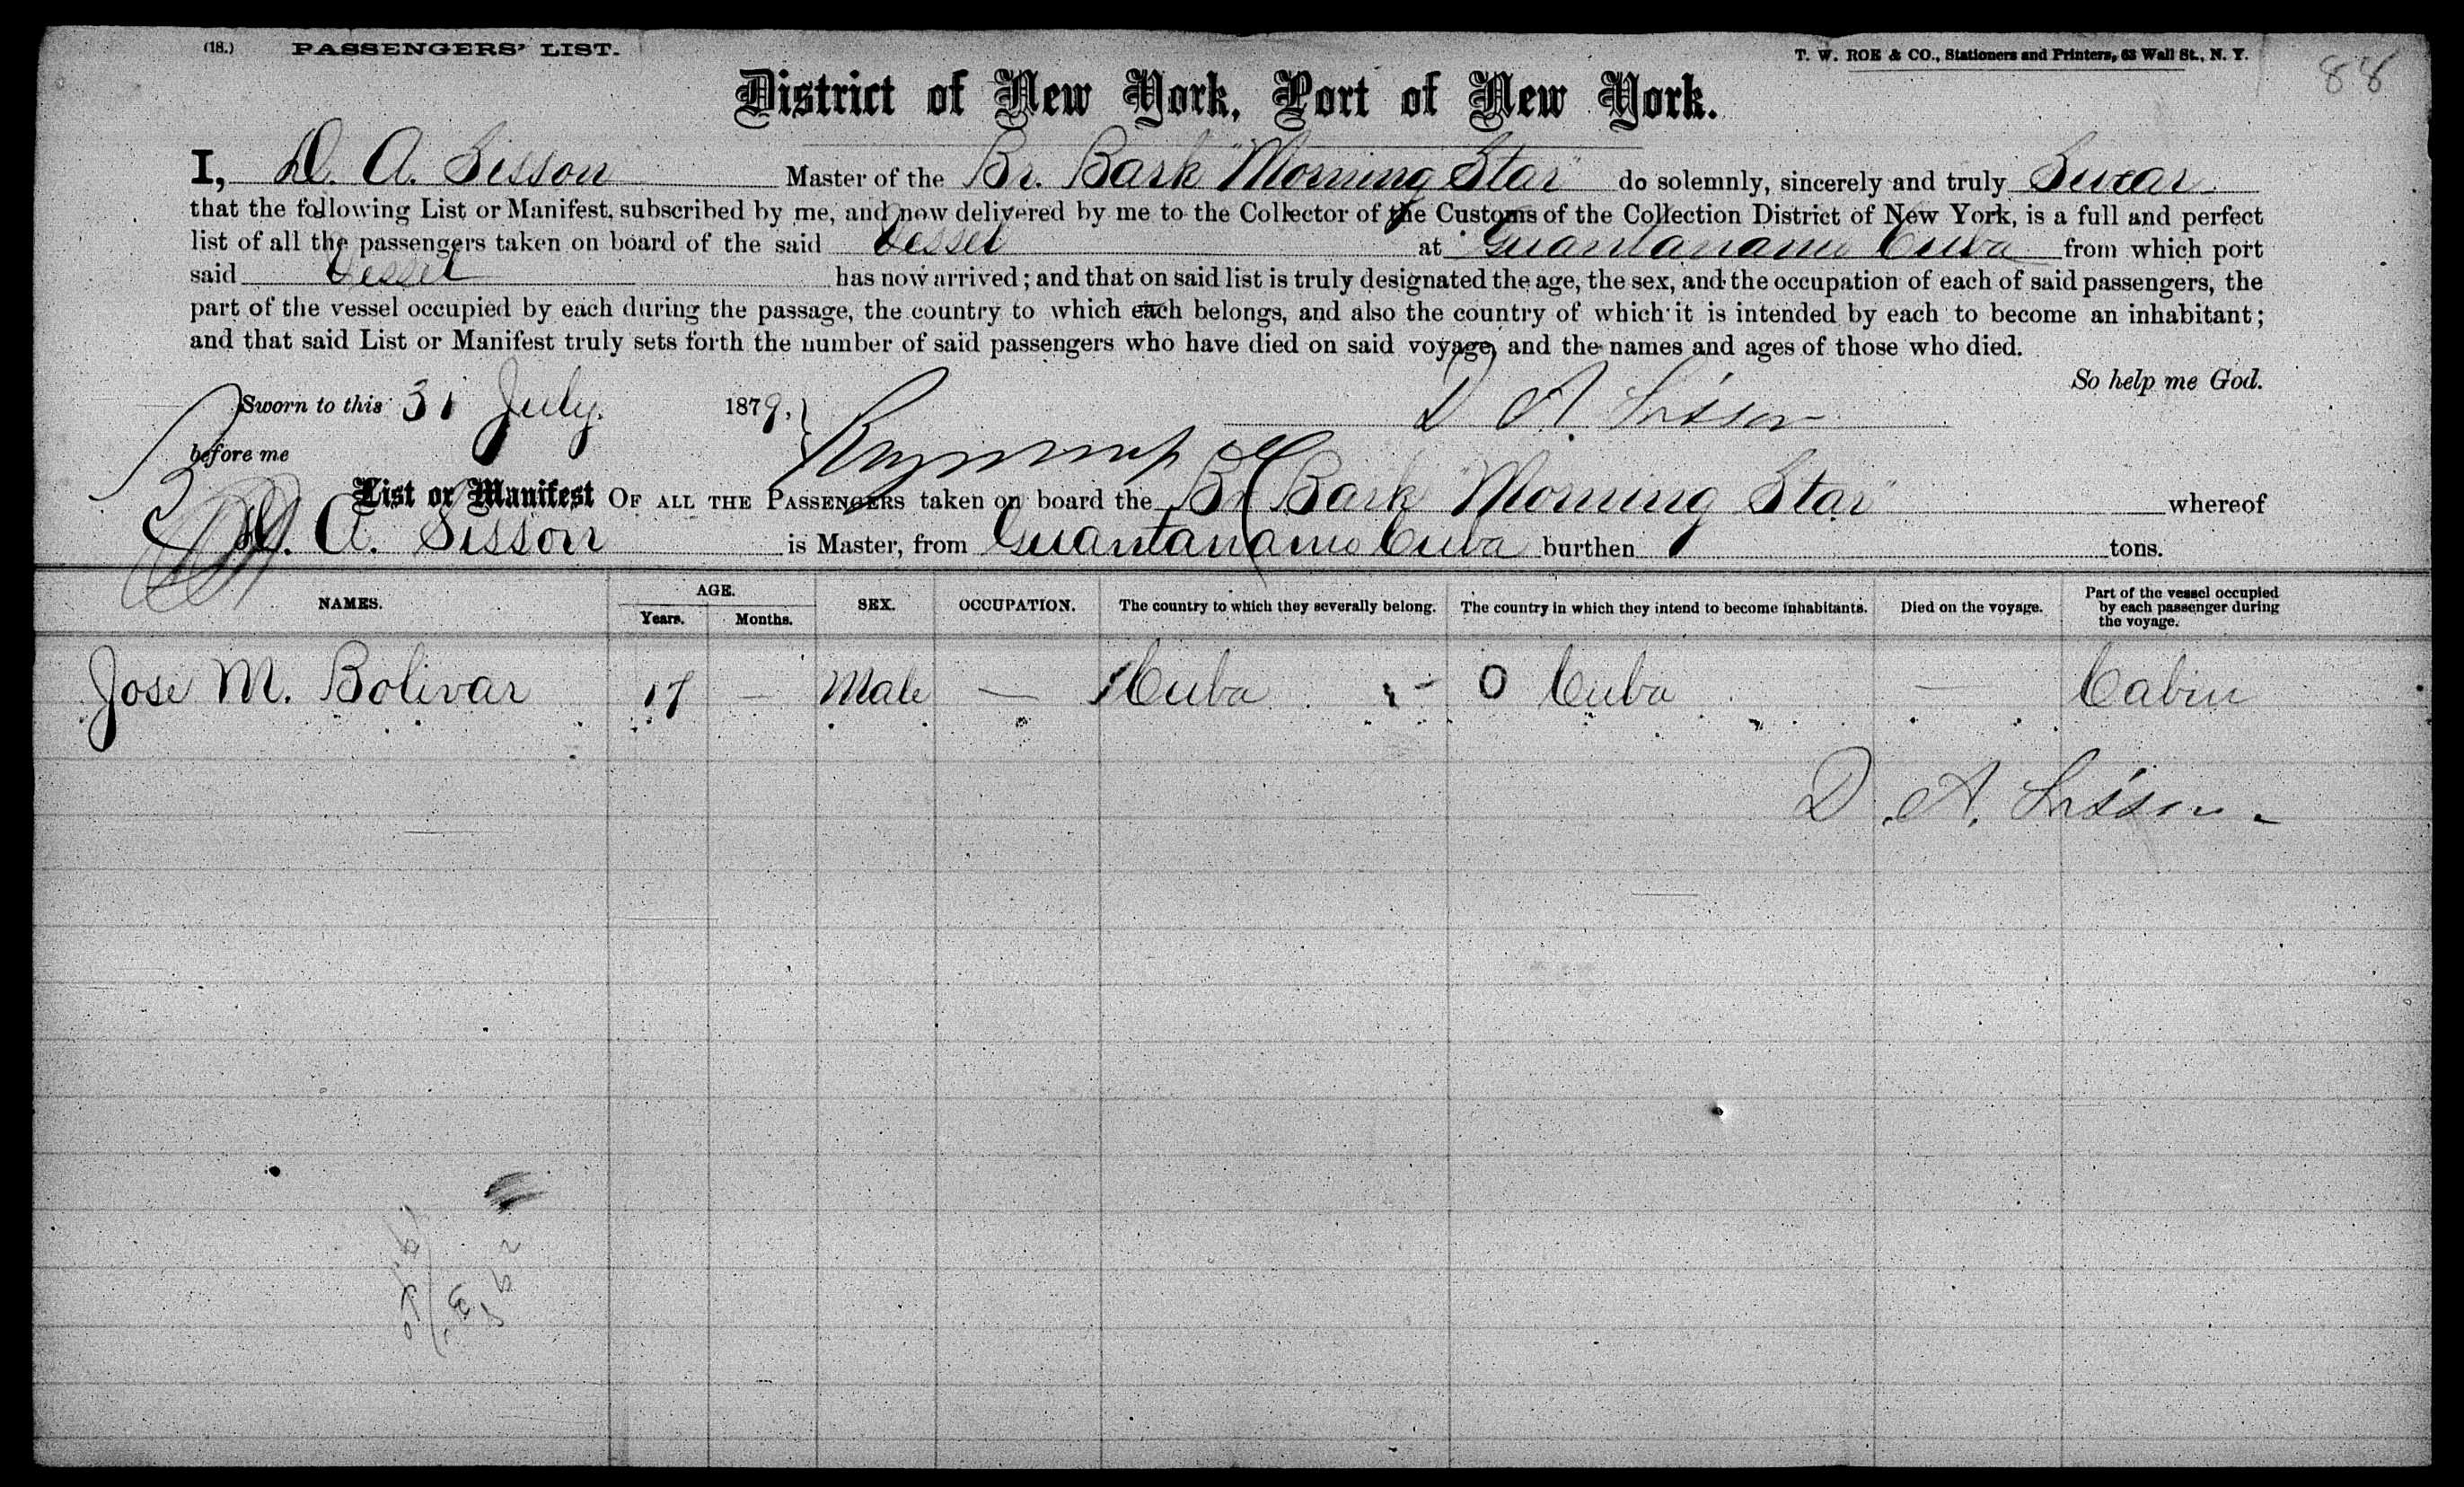 (18.) PASSENGERS' LIST. T. W. ROE & CO., Stationers and Printers, 63 Wall St., N. Y. 88
District of New York, Port of New York.
I, D. A. Sisson Master of the Br. Bark "Morning Star" do solemnly, sincerely and truly Swear
that the following List or Manifest, subscribed by me, and now delivered by me to the Collector of the Customs of the Collection District of New York, is a full and perfect
list of all the passengers taken on board of the said Vessel at Guantanamo Cuba from which port
said Vessel has now arrived; and that on said list is truly designated the age, the sex, and the occupation of each of said passengers, the
part of the vessel occupied by each during the passage, the country to which each belongs, and also the country of which it is intended by each to become an inhabitant;
and that said List or Manifest truly sets forth the number of said passengers who have died on said voyage, and the names and ages of those who died.
So help me God.
Sworn to this 31 July. 1879. D A. Sisson
before me
List or Manifest OF ALL THE PASSENGERS taken on board the Br Bark "Morning Star" whereof
D. A. Sisson is Master, from Guantanamo Cuba burthen tons.
NAMES. AGE. Years. Months. SEX. OCCUPATION. The country to which they severally belong. The country in which they intend to become inhabitants. Died on the voyage. Part of the vessel occupied by each passenger during the voyage.
Jose M. Bolivar 17 — Male — Cuba O Cuba — Cabin
D. A. Sisson